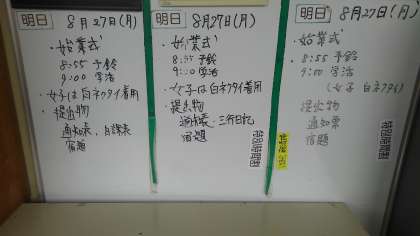 明日 8月27日(月)
・始業式
8:55 予鈴
9:00 学活
・女子は白ネクタイ着用
・提出物
通知表、自課表
宿題
明日 8月27日(月)
・始業式
8:55 予鈴
9:00 学活
・女子は白ネクタイ着用
・提出物
通知表・三行日記
宿題
特別時間割
明日 8月27日(月)
・始業式
8:55 予鈴
9:00 学活
(女子 白ネクタイ)
提出物
通知票
宿題
特別時間割